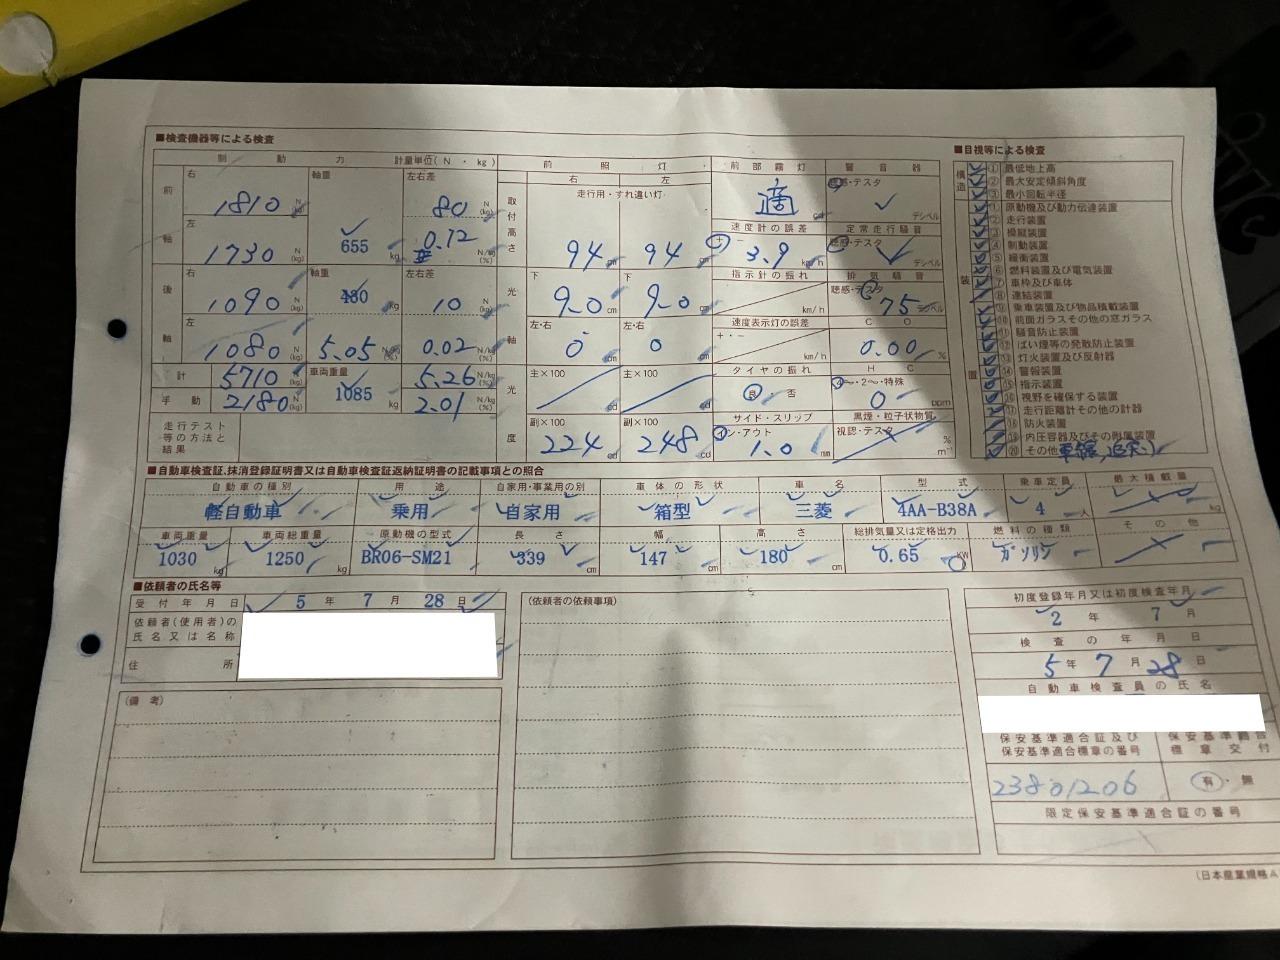 ■検査機器等による検査
制動力 計量単位(N・kg)
前軸 右 1810 N(kg) 軸重 655 kg 左右差 80 N(kg)
左 1730 N(kg) 0.12 N/kg(%)
後軸 右 1090 N(kg) 軸重 430 左右差 10 N(kg)
左 1080 N(kg) 5.05 N/kg(%) 0.02 N/kg(%)
計 5710 N(kg) 車両重量 1085 kg 5.26 N/kg(%)
手動 2180 N(kg) 2.01 N/kg(%)
走行テスト等の方法と結果
前照灯
右 左
走行用・すれ違い灯
取付高さ 94 cm 94 cm
光軸 下 9.0 cm 下 9.0 cm
左・右 0 cm 左・右 0 cm
光度 主×100 cd 主×100 cd
副×100 224 cd 副×100 248 cd
前部霧灯 適 cd
速度計の誤差 + - 3.9 km/h
指示針の振れ km/h
速度表示灯の誤差 +・- km/h
タイヤの振れ 良 否
サイド・スリップ イン・アウト 1.0 mm
警音器 聴感・テスタ デシベル
定常走行騒音 聴感・テスタ デシベル
排気騒音 聴感・テスタ 75 デシベル
CO 0.00 %
HC 4〜・2〜・特殊 0 ppm
黒煙・粒子状物質 視認・テスタ % m⁻¹
■目視等による検査
構造
① 最低地上高
② 最大安定傾斜角度
③ 最小回転半径
装置
① 原動機及び動力伝達装置
② 走行装置
③ 操縦装置
④ 制動装置
⑤ 緩衝装置
⑥ 燃料装置及び電気装置
⑦ 車枠及び車体
⑧ 連結装置
⑨ 乗車装置及び物品積載装置
⑩ 前面ガラスその他の窓ガラス
⑪ 騒音防止装置
⑫ ばい煙等の発散防止装置
⑬ 灯火装置及び反射器
⑭ 警報装置
⑮ 指示装置
⑯ 視野を確保する装置
⑰ 走行距離計その他の計器
⑱ 防火装置
⑲ 内圧容器及びその附属装置
⑳ その他
■自動車検査証、抹消登録証明書又は自動車検査証返納証明書の記載事項との照合
自動車の種別 用途 自家用・事業用の別 車体の形状 車名 型式 乗車定員 最大積載量
軽自動車 乗用 自家用 箱型 三菱 4AA-B38A 4 人 kg
車両重量 車両総重量 原動機の型式 長さ 幅 高さ 総排気量又は定格出力 燃料の種類 その他
1030 kg 1250 kg BR06-SM21 339 cm 147 cm 180 cm 0.65 KW ガソリン
■依頼者の氏名等
受付年月日 5 年 7 月 28 日
依頼者(使用者)の氏名又は名称
住所
(備考)
(依頼者の依頼事項)
初度登録年月又は初度検査年月
2 年 7 月
検査の年月日
5 年 7 月 28 日
自動車検査員の氏名
保安基準適合証及び保安基準適合標章の番号
23801206
保安基準適合標章交付
有・無
限定保安基準適合証の番号
(日本産業規格A